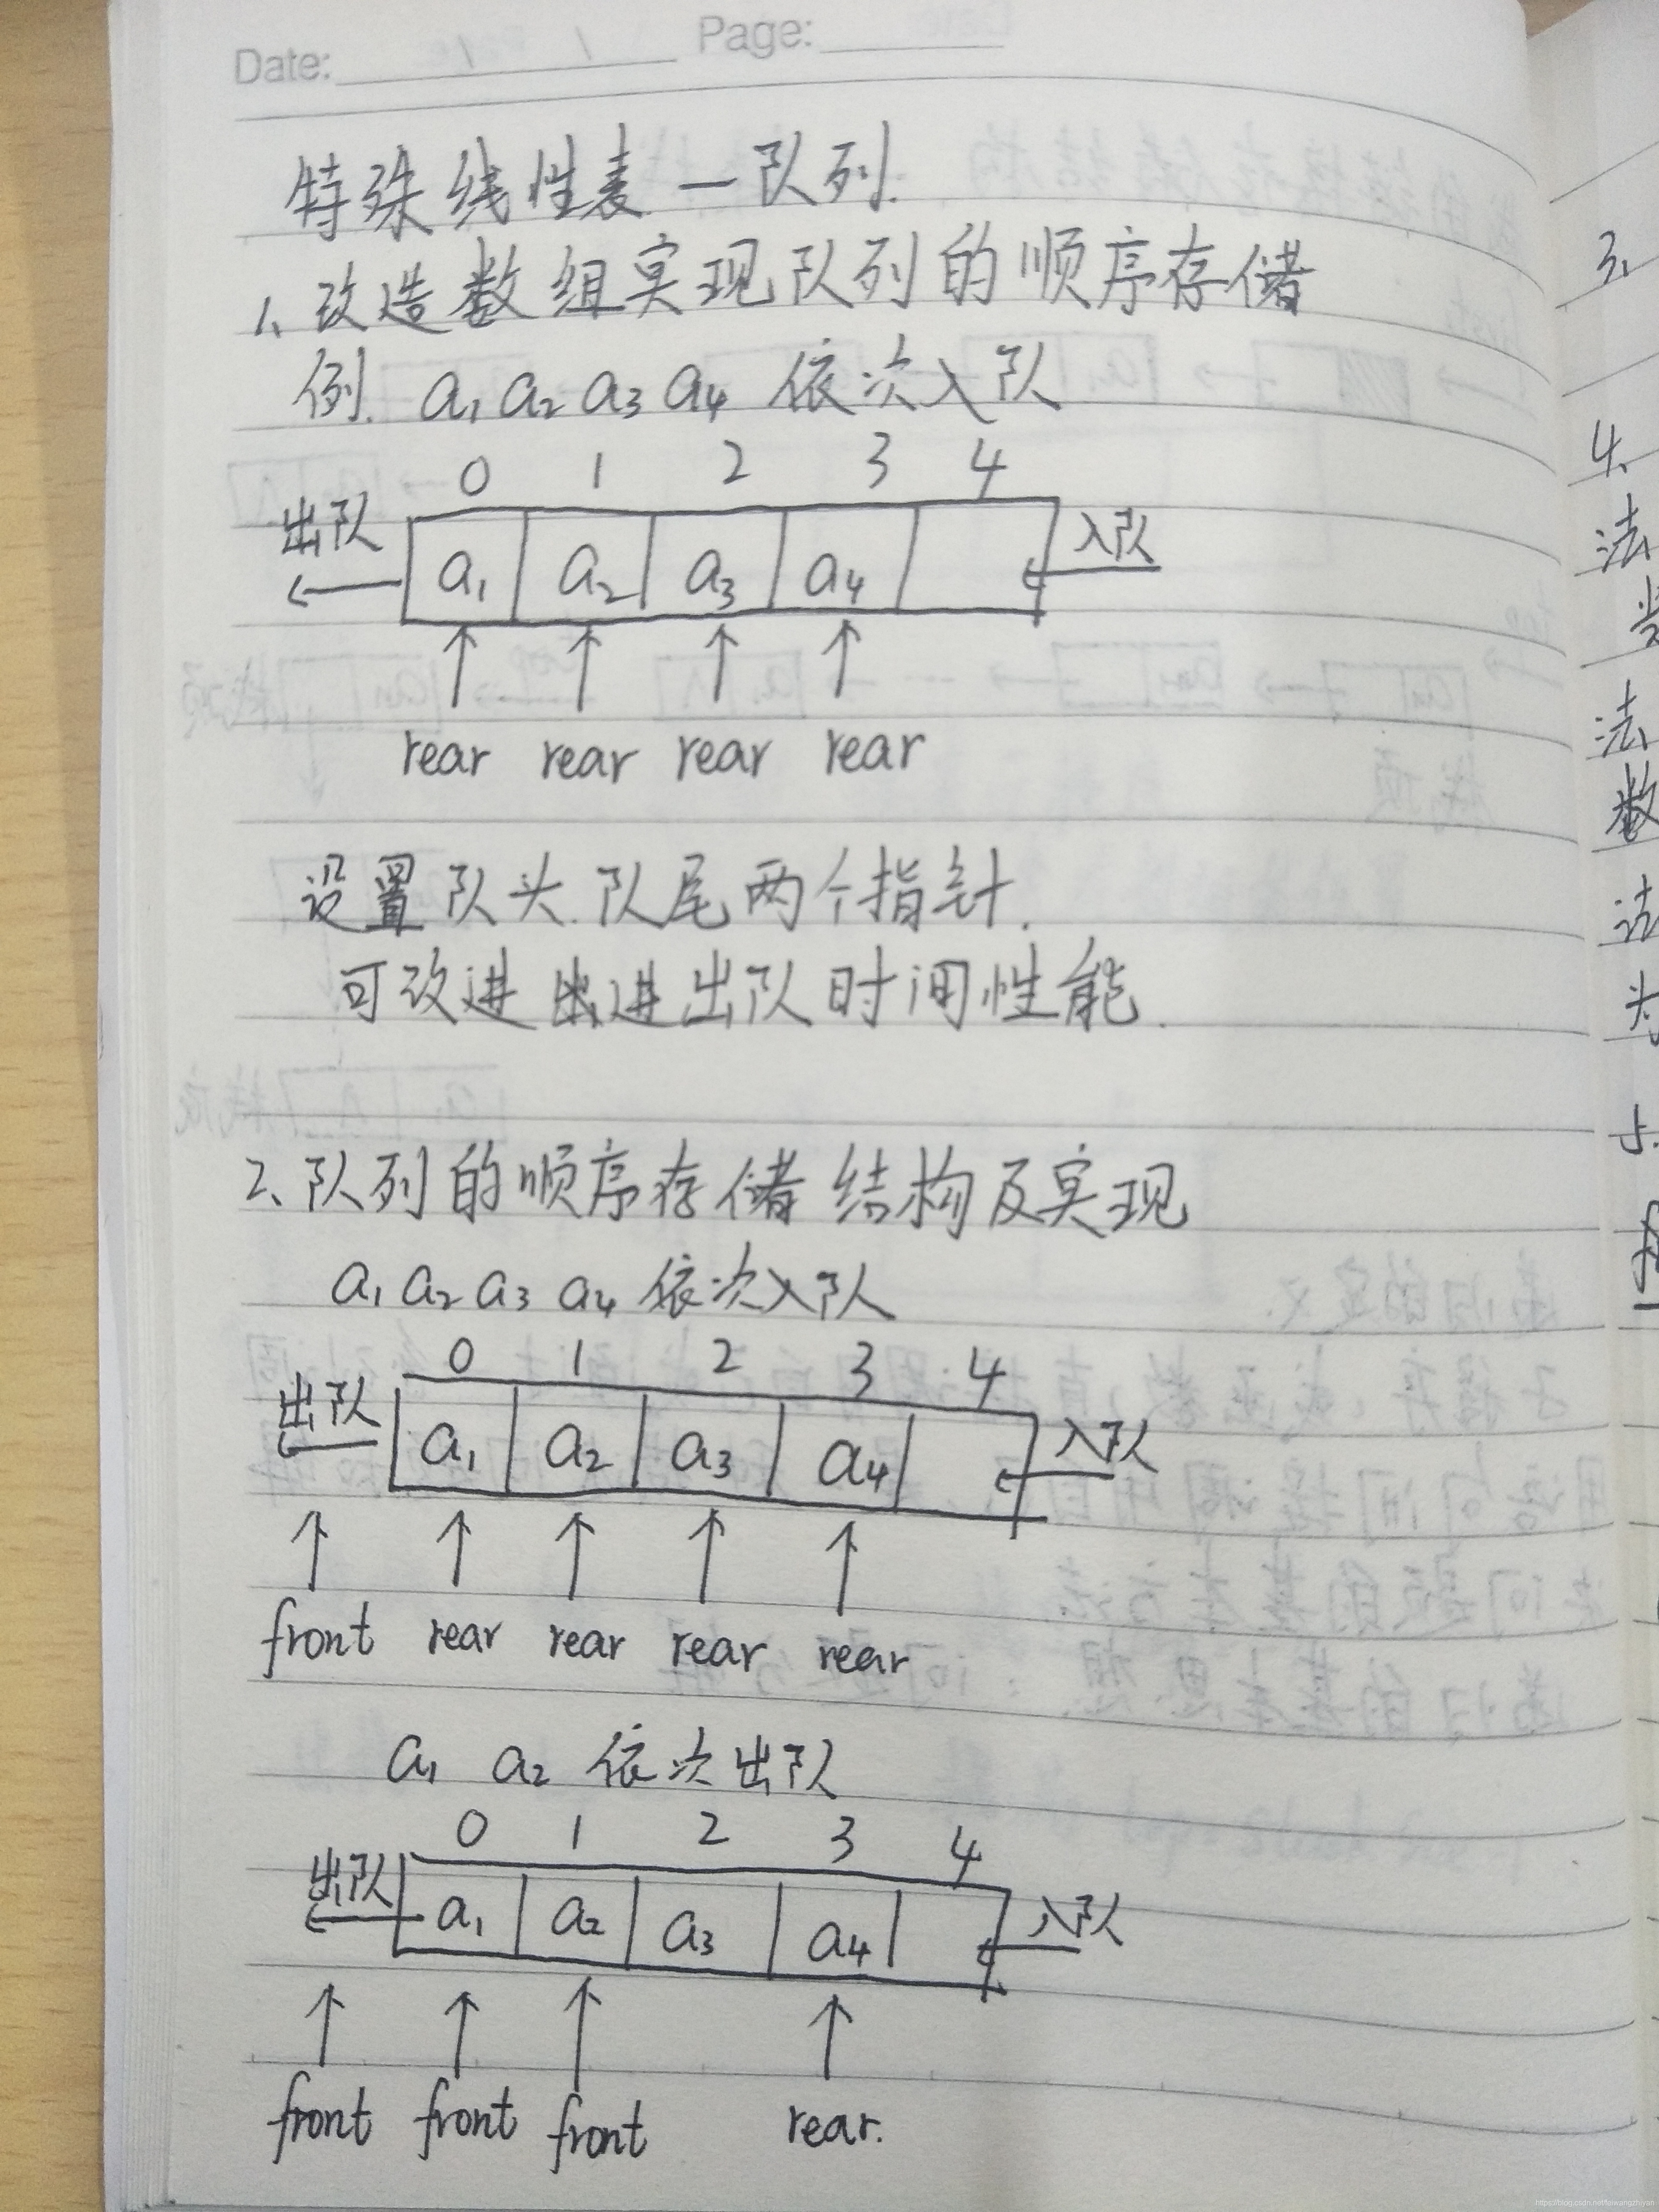 Date: / / Page:
特殊线性表一队列.
1、改造数组实现队列的顺序存储
例. a₁ a₂ a₃ a₄ 依次入队
0 1 2 3 4
出队 a₁ a₂ a₃ a₄ 入队
rear rear rear rear
设置队头.队尾两个指针.
可改进 进出队时间性能.
2、队列的顺序存储结构及实现
a₁ a₂ a₃ a₄ 依次入队
0 1 2 3 4
出队 a₁ a₂ a₃ a₄ 入队
front rear rear rear rear
a₁ a₂ 依次出队
0 1 2 3 4
出队 a₁ a₂ a₃ a₄ 入队
front front front rear.
3、
4、
法
法
数
5.